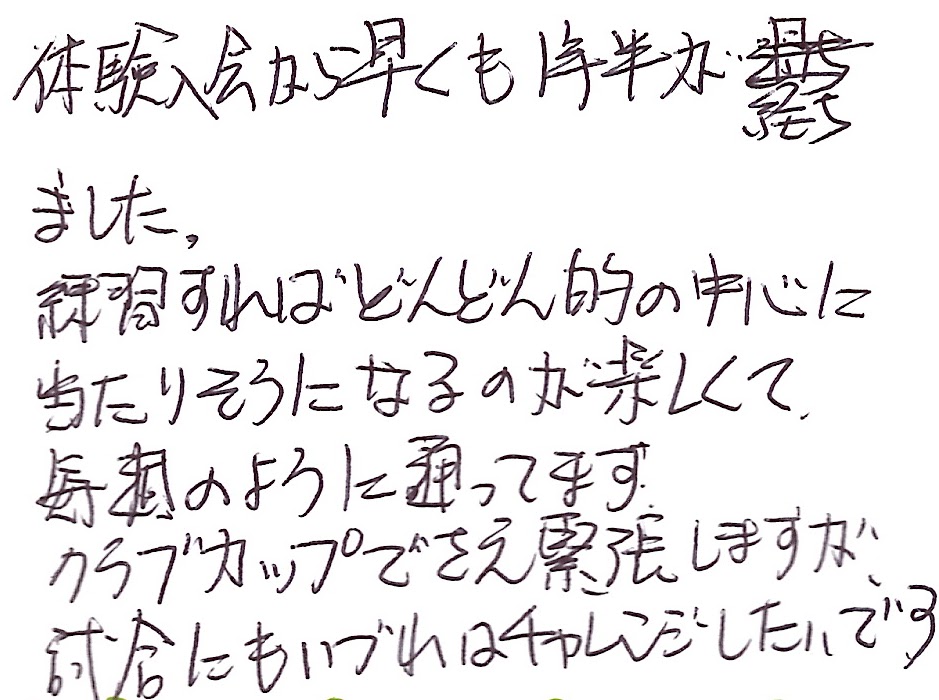 体験入会から早くも1年半が経ち
ました。
練習すればどんどん的の中心に
当たりそうになるのが楽しくて、
毎週のように通ってます。
クラブカップでさえ緊張しますが、
試合にもいづれはチャレンジしたいです